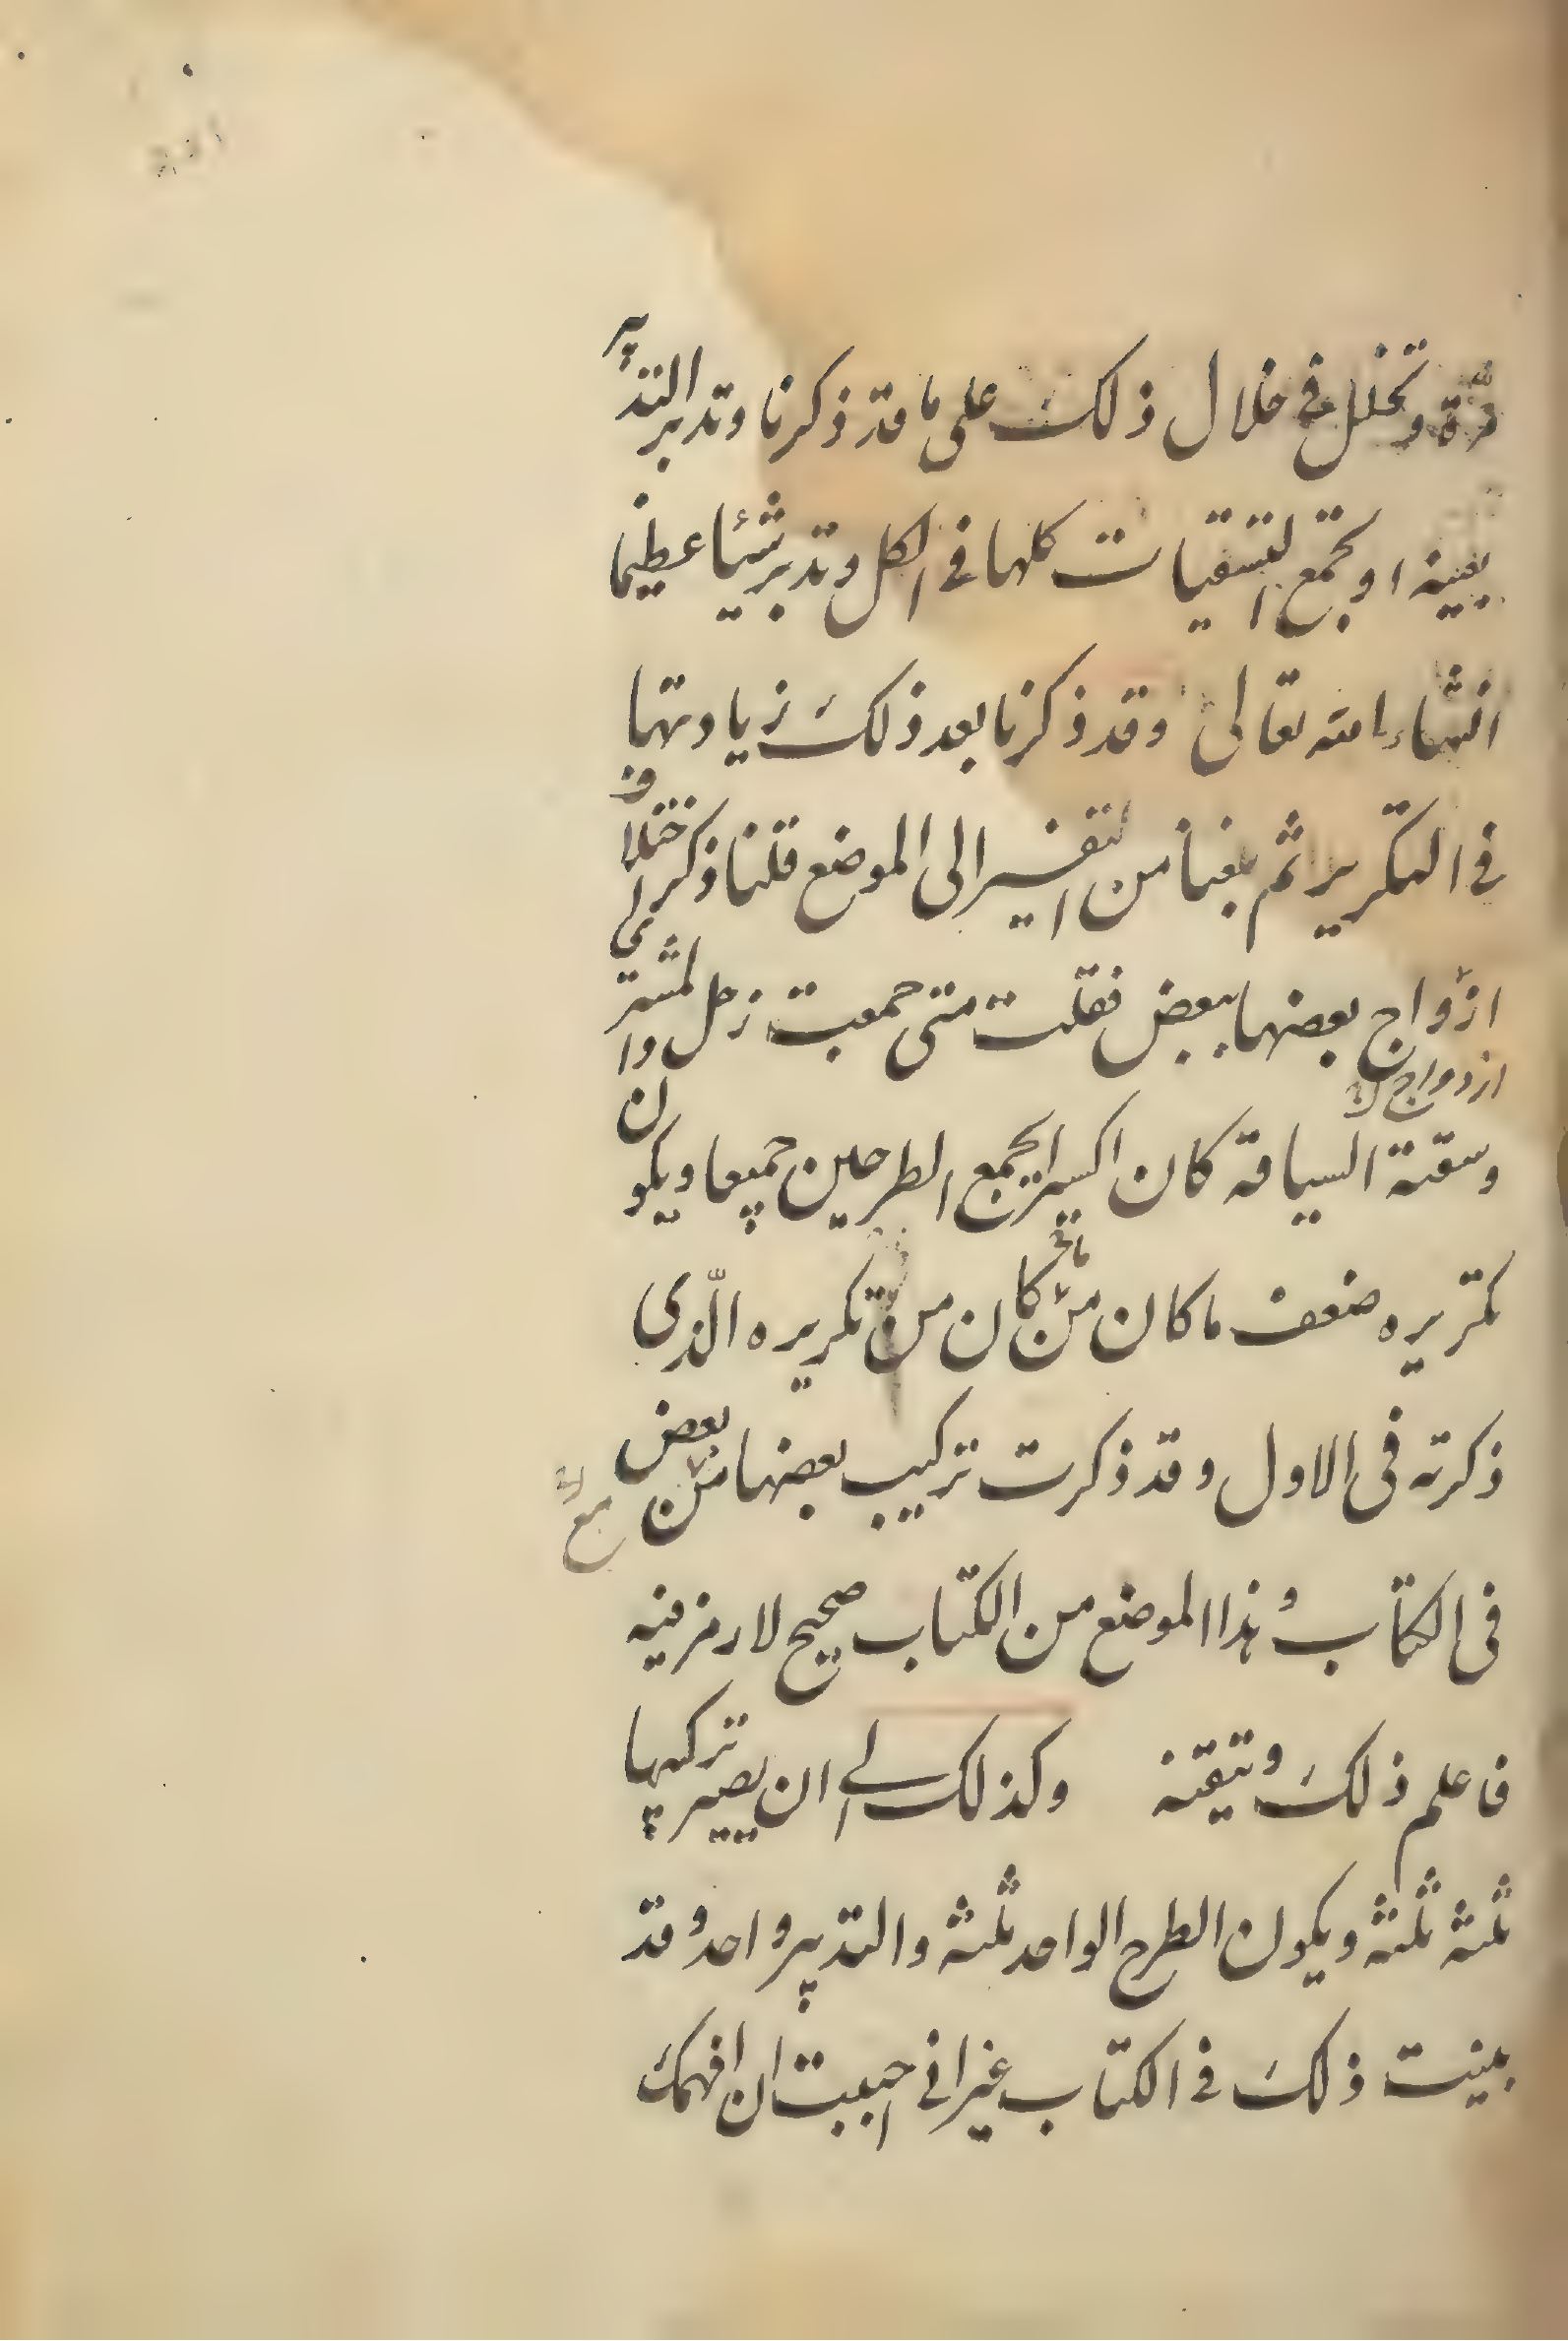 مرّة وتحلل فى خلال ذلك على ما قد ذكرنا وتدبر التدبير
بعينه او تجمع التسقيات كلها فى الكل وتدبر شيئا عظيما
انشاء الله تعالى وقد ذكرنا بعد ذلك زيادتها
فى التكرير ثم بلغنا من التفسير الى الموضع قلنا ذكر اختلاف
ازواج بعضها ببعض فقلت متى جمعت زحل والمشترى
ازدواج
وسقته السياقة كان اكسيرا لجمع الطرحين جميعا ويكون
تكريره ضعف ما كان من كان من تكريره الّذى
ذكرته فى الاول وقد ذكرت تركيب بعضها من بعض
مع
فى الكتاب وهذا الموضع من الكتاب صحيح لا رمز فيه
فاعلم ذلك وتيقنه وكذلك الى ان يصير تركيبها
ثلثه ثلثه ويكون الطرح الواحد ثلثه والتدبير واحد وقد
بينت ذلك فى الكتاب غير انى احببت ان افهمك